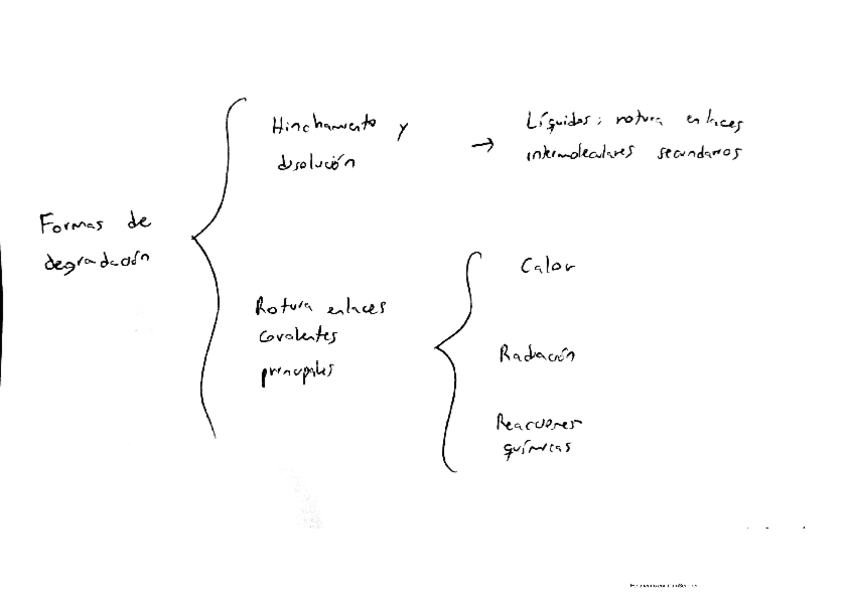 Hinchamiento y
disolución
→ Líquidos; rotura enlaces
intermoleculares secundarios
Formas de
degradación
Rotura enlaces
covalentes
principales
Calor
Radiación
Reacciones
químicas